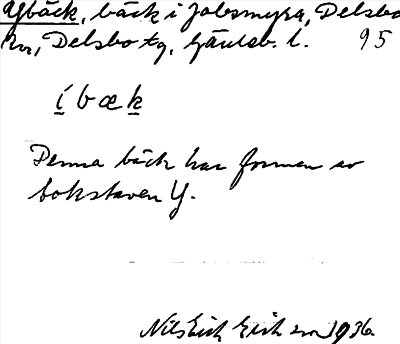 Ybäck, bäck i Jobsmyra, Delsbo
sn, Delsbo tg, Gävleb. l. 95
í b æ k
Denna bäck har formen av
bokstaven Y.
Nils Erik Eriksson 1936